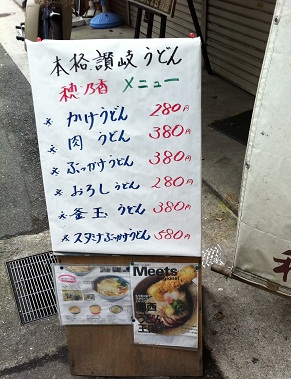 本格讃岐うどん
穂乃香 メニュー
× かけうどん 280円
× 肉うどん 380円
× ぶっかけうどん 380円
× おろしうどん 280円
× 釜玉うどん 380円
× スタミナぶっかけうどん 580円
Meets
関西
うどん
王